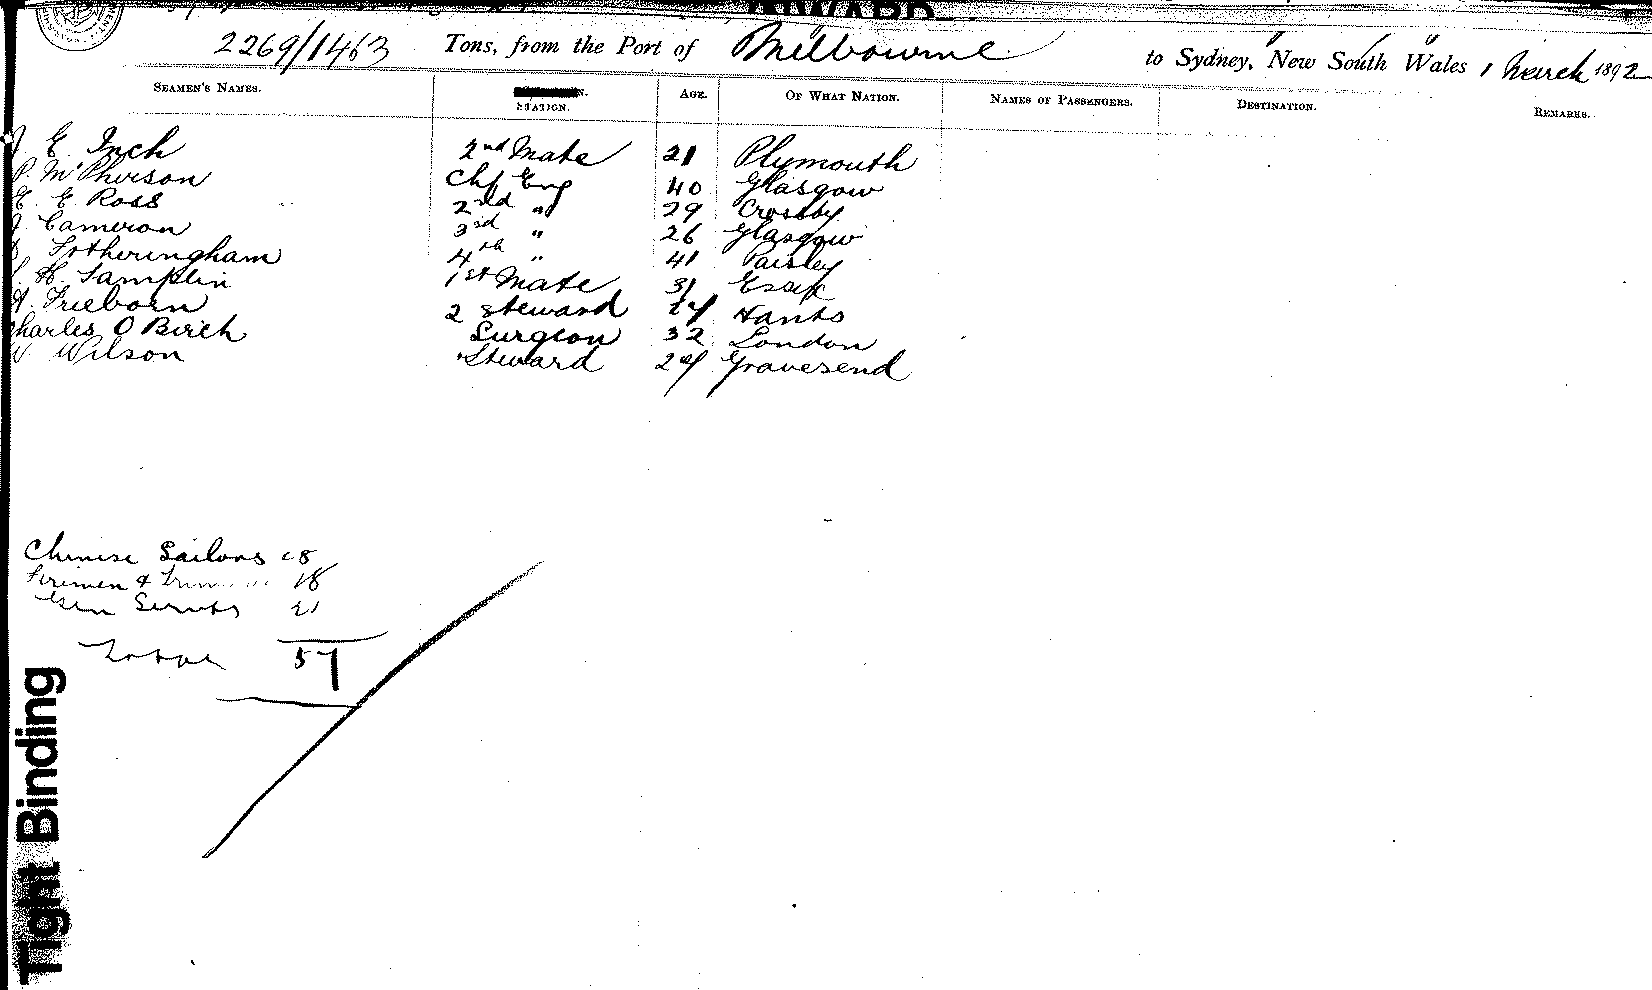 2269/1463 Tons, from the Port of Melbourne to Sydney, New South Wales, 1 March 1892
SEAMEN'S NAMES. STATION. AGE. OF WHAT NATION. NAMES OF PASSENGERS. DESTINATION. REMARKS.
J E Inch 2nd Mate 21 Plymouth
P. McPherson Chf Eng 40 Glasgow
E. E Ross 2nd " 29 Crosby
J Cameron 3rd " 26 Glasgow
Fotheringham 4th " 41 Paisley
H. Tamplin 1st Mate 31 Essex
A. Frieborn 2 Steward Hants
Charles O Birch Surgeon 32 London
W Wilson Steward 24 Gravesend
Chinese Sailors 18
Firemen & 18
21
Total 57
Tight Binding